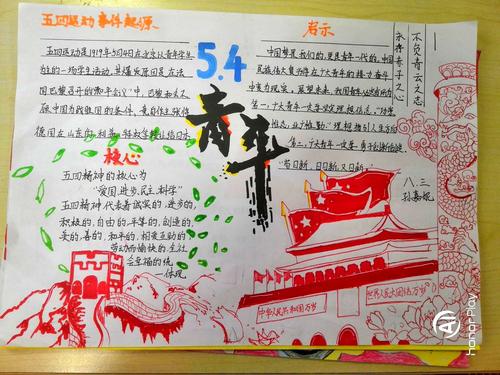 五四运动事件起源
五四运动是1919年5月4日在北京以青年学生
为主的一场学生活动,其爆发原因是在法
国巴黎召开的"和平会议"中,巴黎和会不
顾中国为战胜国的条件,竟自作主张将
德国在山东的
核心
五四精神的核心为
"爱国,进步,民主,科学"
五四精神代表着诚实的,进步的,
积极的,自由的,平等的,创造的,
美的,善的,和平的,相爱互助的,
劳动而愉快的,全社
会幸福的统
一体现
5.4
青年
启示
中国梦是我们的,更是青年一代的。中国
民族伟大复兴终在广大青年的接力奋斗
中变为现实。展望未来,我国青年
第一,广大青年一定要坚定理想信念。"功崇
惟志,业广惟勤。"理想指引人生方向
第二,广大青年一定要勇于创新创造
"苟日新,日日新,又日新。"
不负青云之志
永存赤子之心
八.三
孙嘉
中华人民共和国万岁
世界人民大团结万岁
honor Play
AI